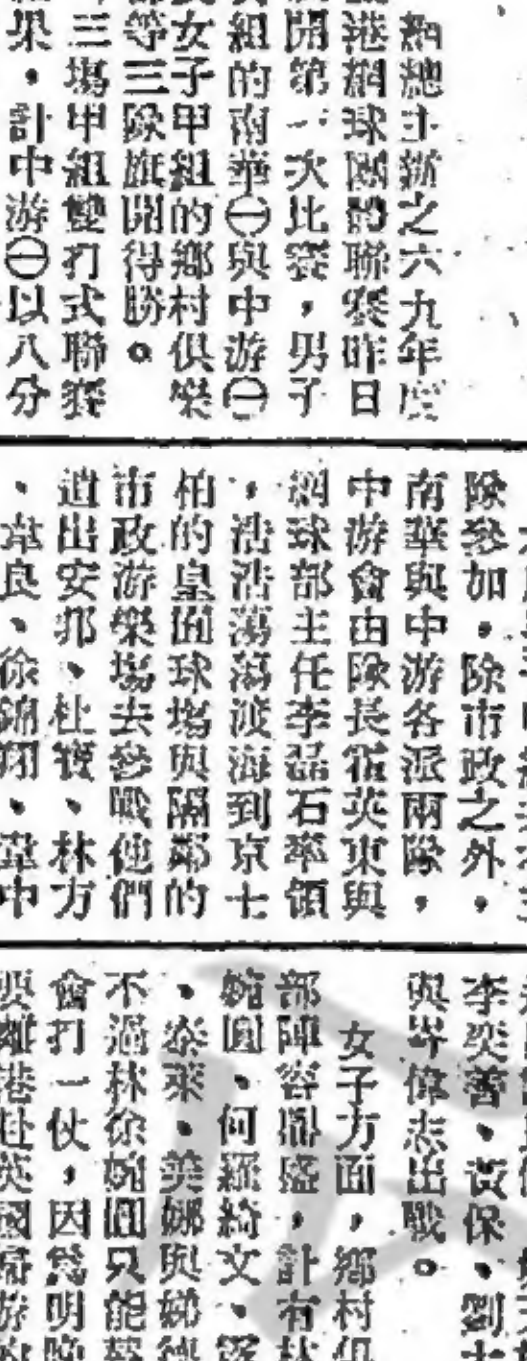 網總主辦之六九年度
港網球團體聯賽昨日
開第一次比賽，男子
組的南華㊀與中游㊀
女子甲組的鄉村俱樂
等三隊旗開得勝。
三場甲組雙打式聯賽
果，計中游㊀以八分
隊參加，除市政之外，
南華與中游各派兩隊，
中游會由隊長霍英東與
網球部主任李晶石率領
，浩浩蕩蕩渡海到京士
柏的皇囿球場與隔鄰的
市政游樂場去參戰他們
道出安邦、杜寶、林方
、韋良、徐錦翔、韋中
李奕善、黃保、劉
與岑偉志出戰。
女子方面，鄉村俱
部陣容鼎盛，計有林
婉圓、何羅綺文、
、泰萊、美娜與娣
不過林徐婉圓只能
會打一仗，因為明晚
要離港赴英國